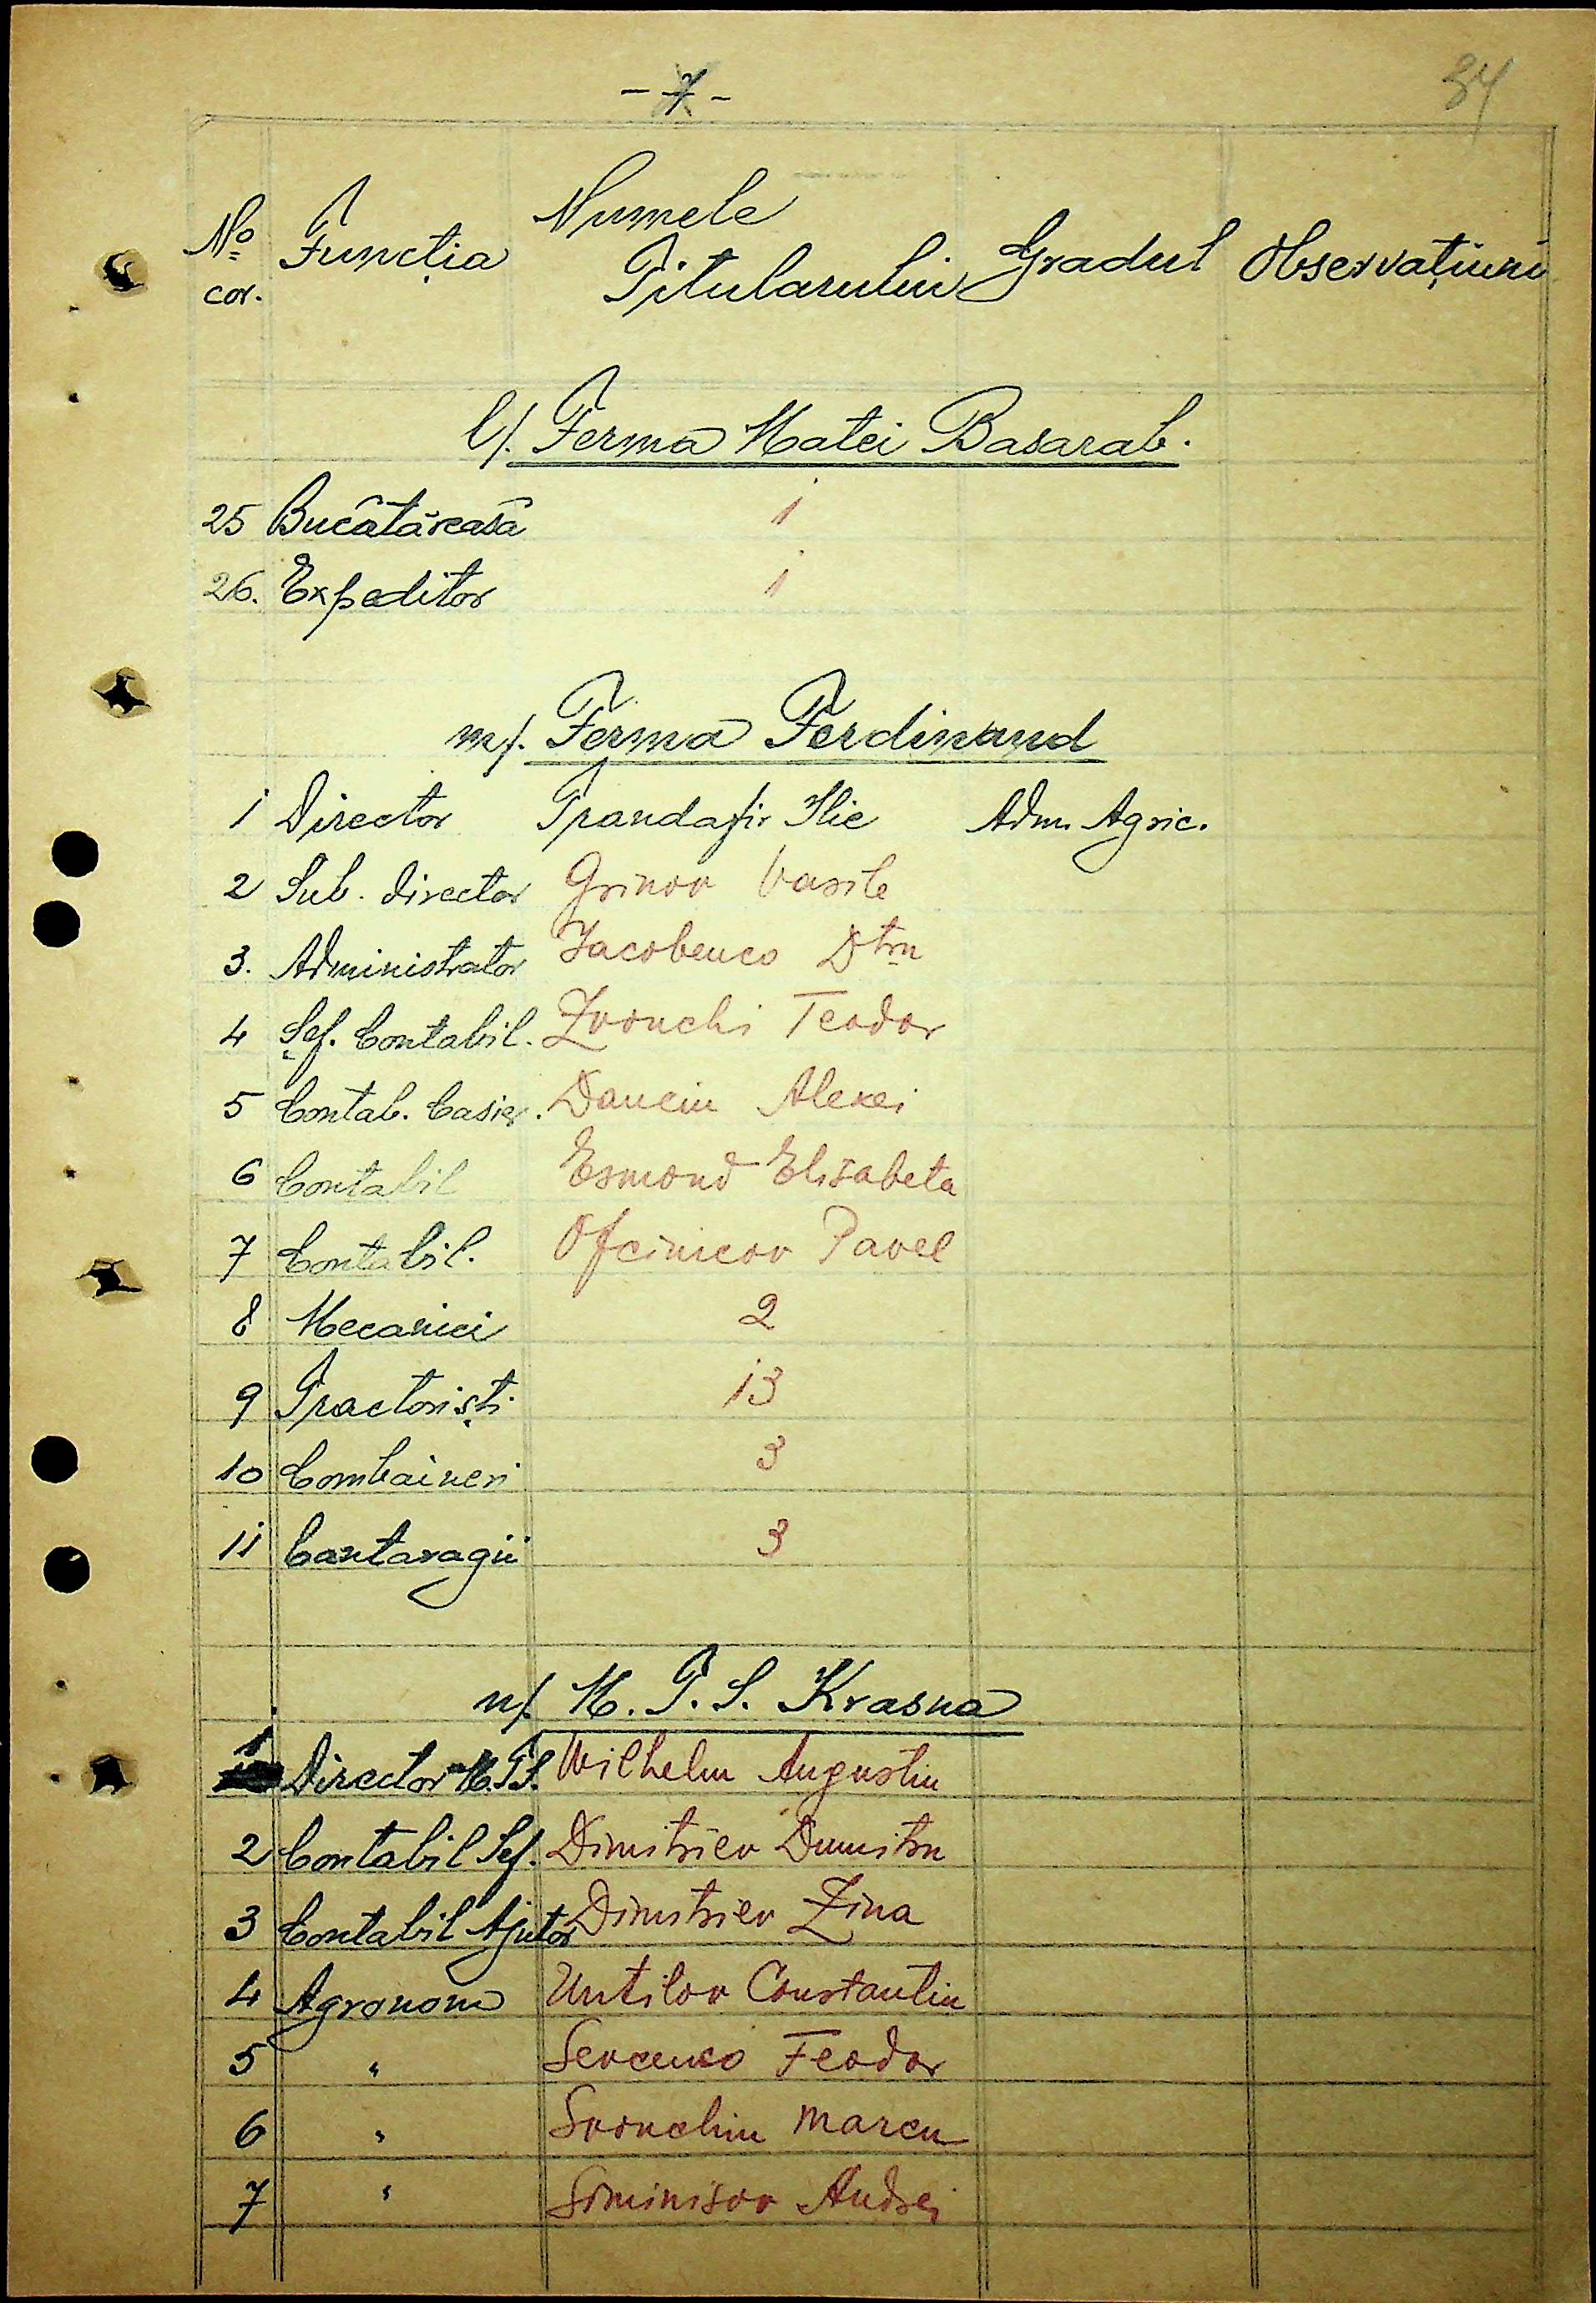 - 7 -
34
No cor. Funcția Numele Titularului Gradul Observațiuni
l/. Ferma Matei Basarab.
25 Bucătăreasă 1
26. Expeditor 1
m/. Ferma Ferdinand
1 Director Trandafir Ilie Adm. Agric.
2 Sub. director Grinov Vasile
3. Administrator Iacobenco Dtru
4 Șef. Contabil. Zvonchi Teodor
5 Contab. Casier. Danciu Alexei
6 Contabil Esmond Elisabeta
7 Contabil. Ofcinicov Pavel
8 Mecanici 2
9 Tractoriști 13
10 Combaineri 3
11 Cantaragii 3
n/. M. T. S. Krasna
1 Director M.T.S. Wilhelm Augustin
2 Contabil Sef. Dimitriev Dumitru
3 Contabil Ajutor Dimitriev Zina
4 Agronom Untilov Constantin
5 " Sevcenco Feodor
6 " Marcu
7 " Andrei